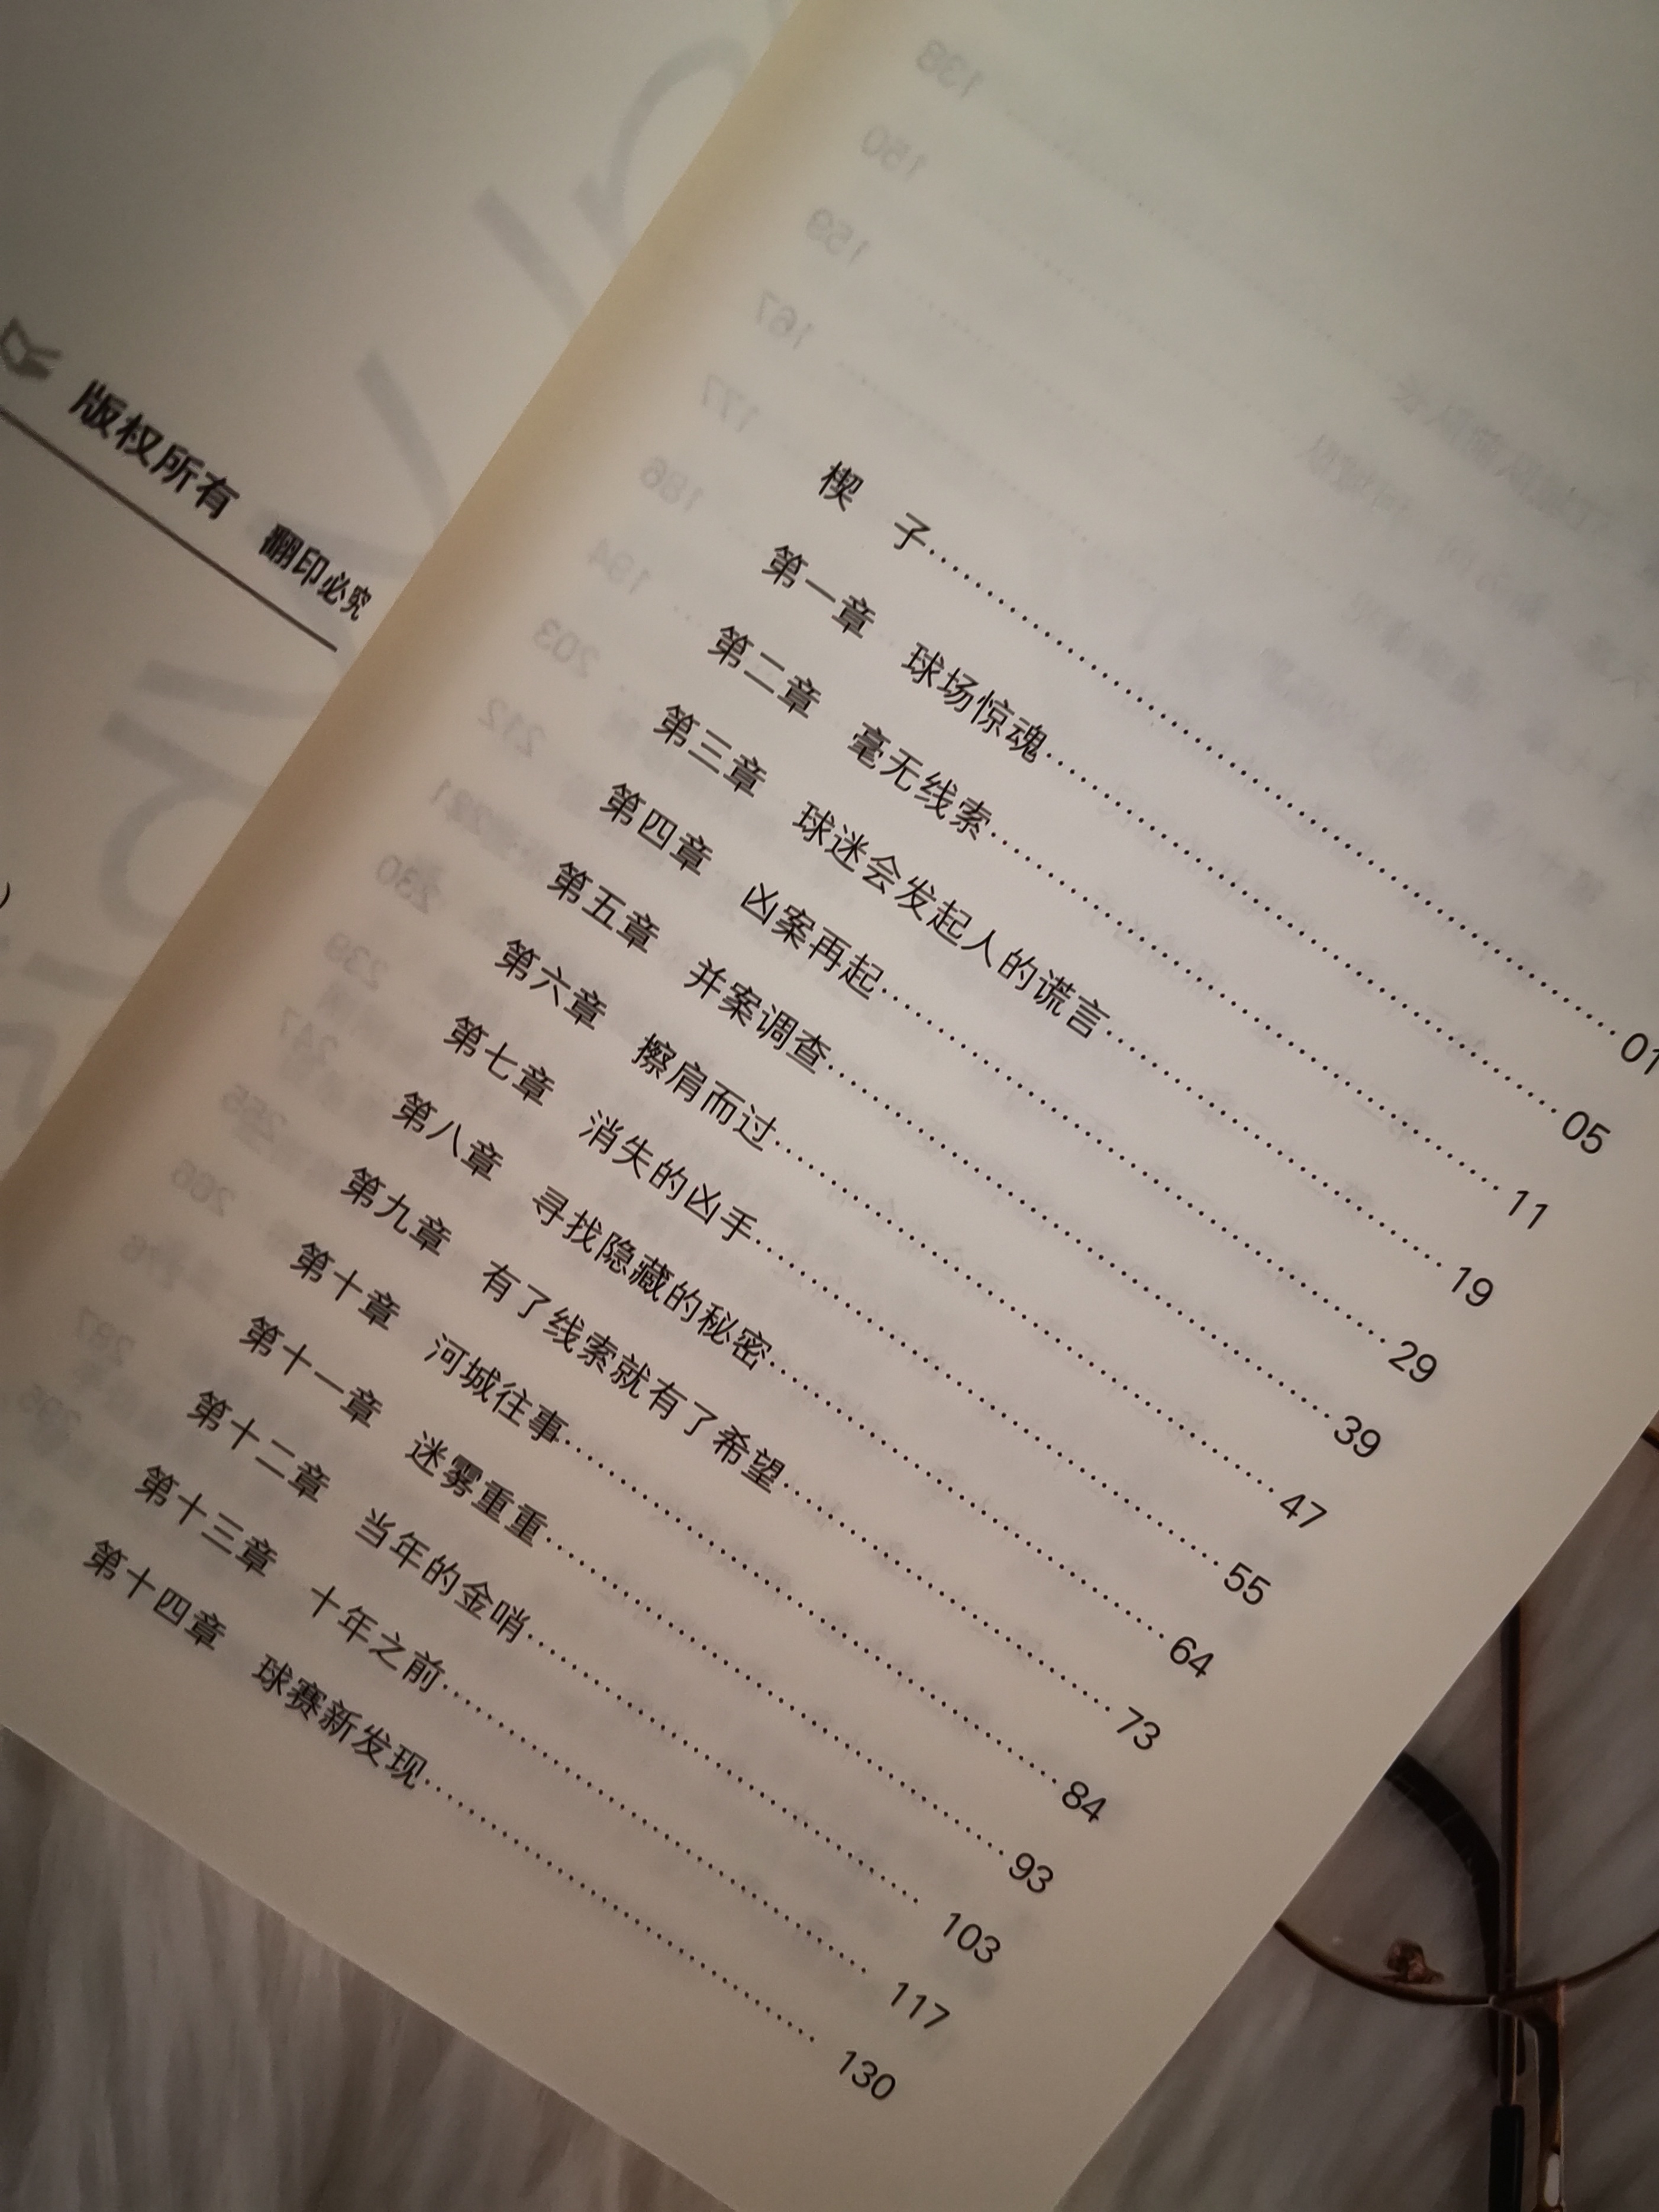 版权所有 翻印必究
楔 子 01
第一章 球场惊魂 05
第二章 毫无线索 11
第三章 球迷会发起人的谎言 19
第四章 凶案再起 29
第五章 并案调查 39
第六章 擦肩而过 47
第七章 消失的凶手 55
第八章 寻找隐藏的秘密 64
第九章 有了线索就有了希望 73
第十章 河城往事 84
第十一章 迷雾重重 93
第十二章 当年的金哨 103
第十三章 十年之前 117
第十四章 球赛新发现 130